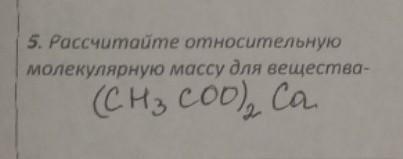 5. Рассчитайте относительную
молекулярную массу для вещества-
(CH₃COO)₂Ca